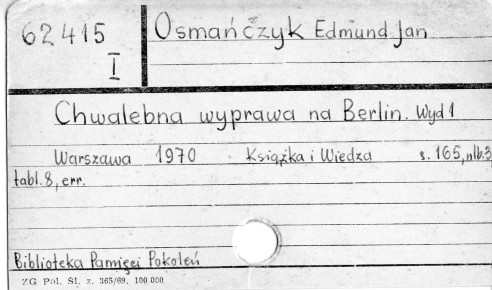 62415 Osmańczyk Edmund Jan
I
Chwalebna wyprawa na Berlin. Wyd 1
Warszawa 1970 Książka i Wiedza s. 165, nlb. 3,
tabl. 8, err.
Biblioteka Pamięci Pokoleń
ZG Pol. Śl. z. 365/69. 100 000